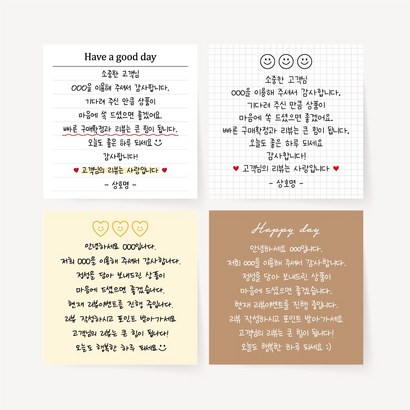 Have a good day
소중한 고객님
OOO을 이용해 주셔서 감사합니다.
기다려 주신 만큼 상품이
마음에 쏙 드셨으면 좋겠어요.
빠른 구매확정과 리뷰는 큰 힘이 됩니다.
오늘도 좋은 하루 되세요
감사합니다!
♥ 고객님의 리뷰는 사랑입니다 ♥
- 상호명 -
소중한 고객님
OOO을 이용해 주셔서 감사합니다.
기다려 주신 만큼 상품이
마음에 쏙 드셨으면 좋겠어요.
빠른 구매확정과 리뷰는 큰 힘이 됩니다.
오늘도 좋은 하루 되세요
감사합니다!
♥ 고객님의 리뷰는 사랑입니다 ♥
- 상호명 -
안녕하세요 OOO입니다.
저희 OOO을 이용해 주셔서 감사합니다.
정성을 담아 보내드린 상품이
마음에 드셨으면 좋겠습니다.
현재 리뷰이벤트를 진행 중입니다.
리뷰 작성하시고 포인트 받아가세요
고객님의 리뷰는 큰 힘이 됩니다!
오늘도 행복한 하루 되세요
Happy day
안녕하세요 OOO입니다.
저희 OOO을 이용해 주셔서 감사합니다.
정성을 담아 보내드린 상품이
마음에 드셨으면 좋겠습니다.
현재 리뷰이벤트를 진행 중입니다.
리뷰 작성하시고 포인트 받아가세요
고객님의 리뷰는 큰 힘이 됩니다!
오늘도 행복한 하루 되세요 :)